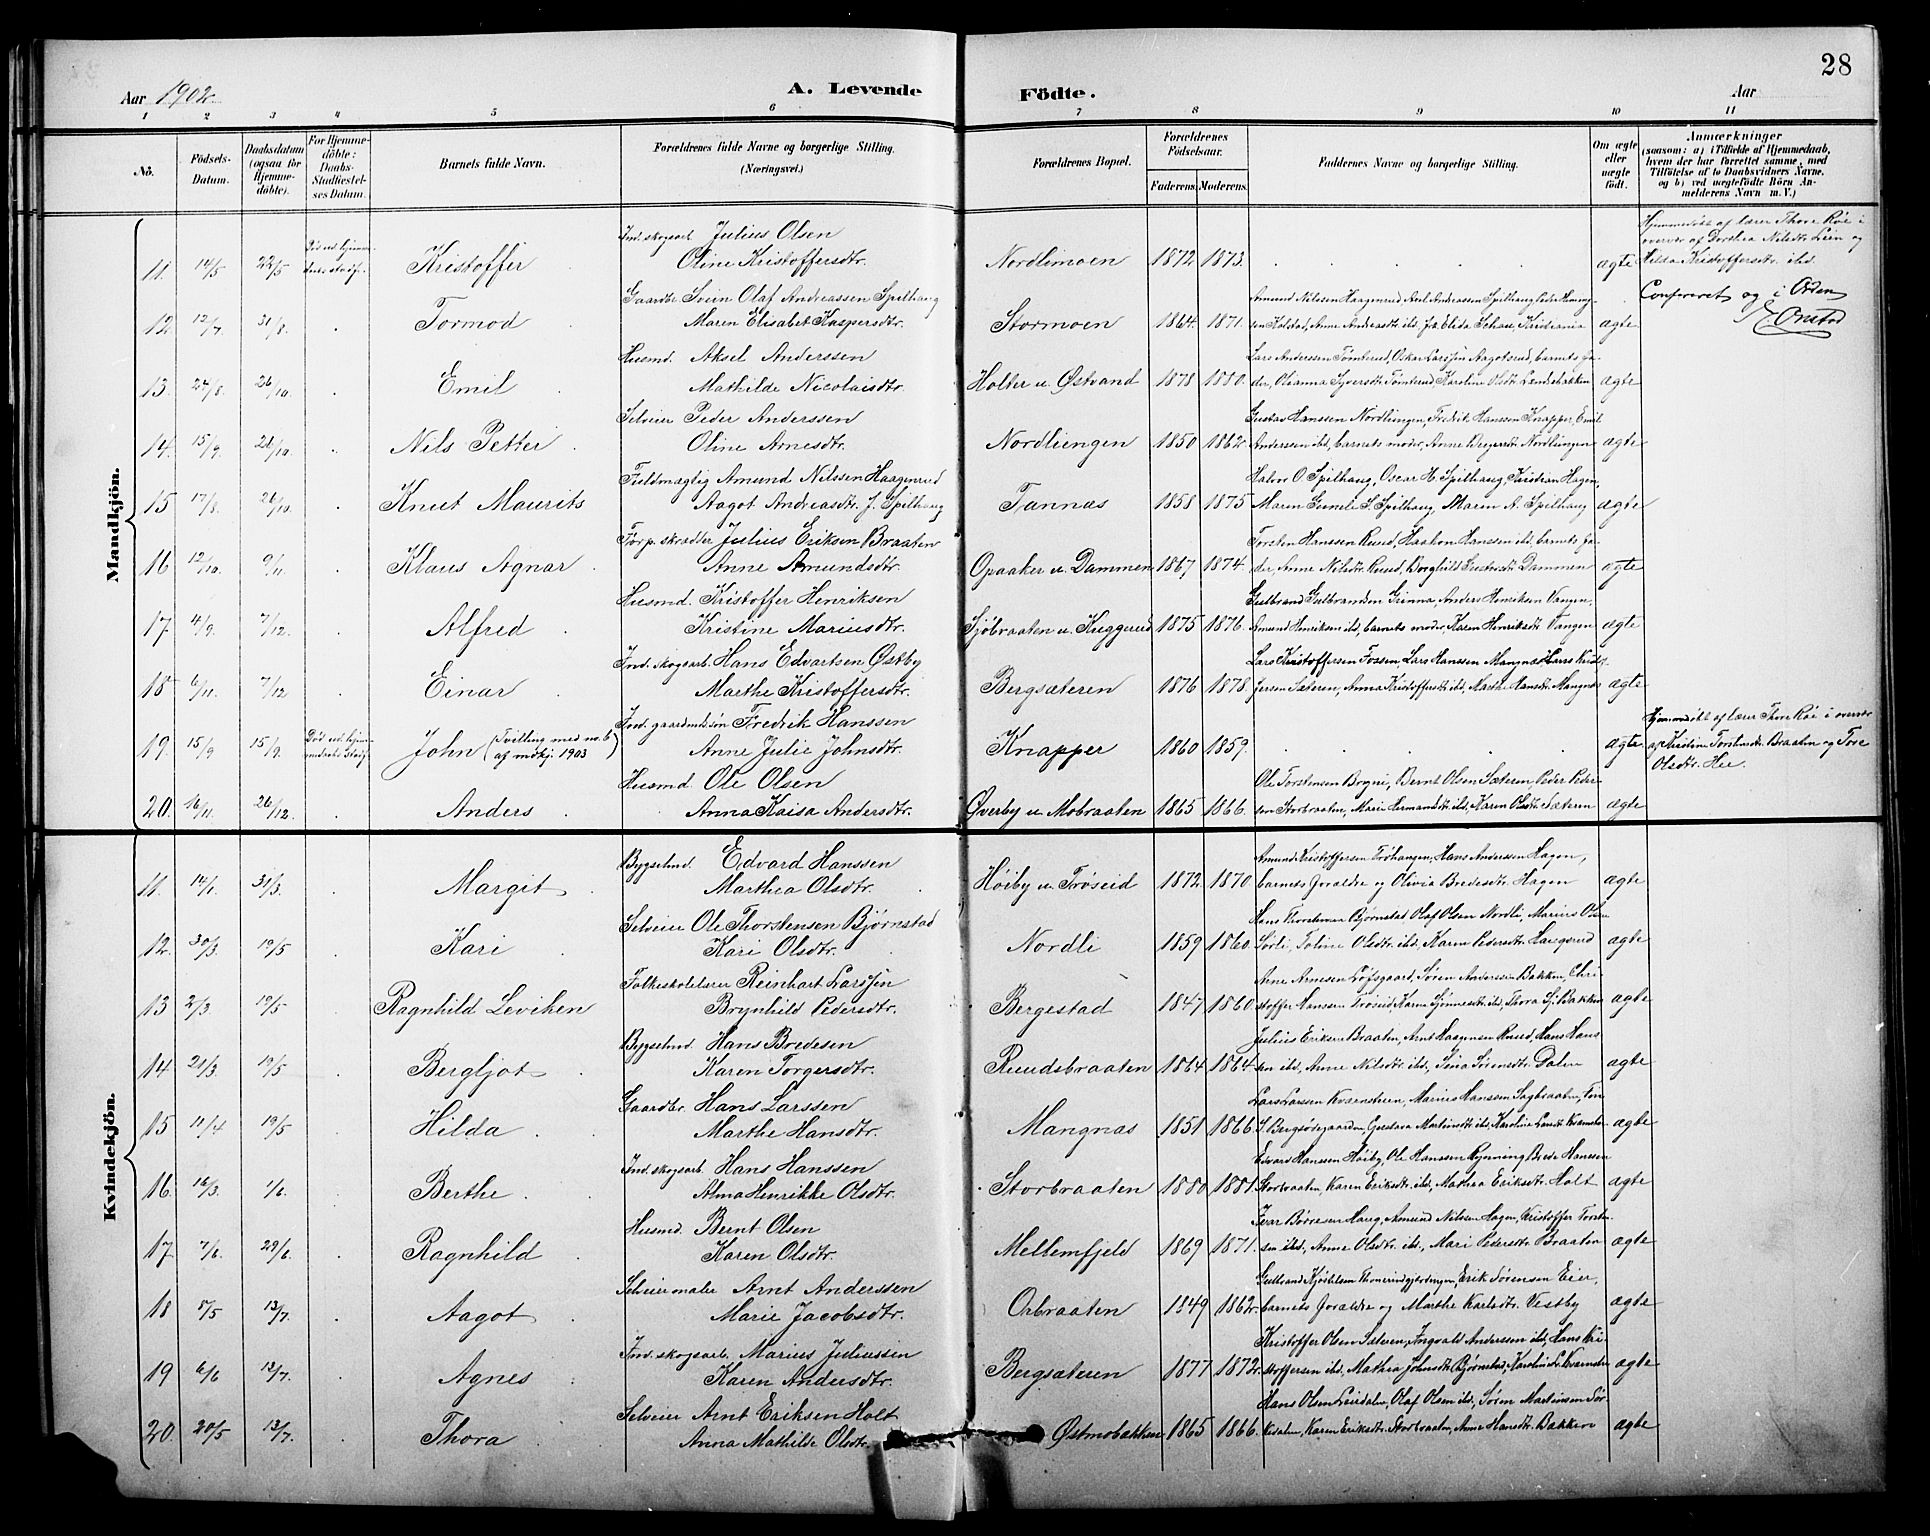 28
Aar 1902. A. Levende Födte. Aar
1 2 3 4 5 6 7 8 9 10 11
No. Födsels-Datum. Daabsdatum (ogsaa for Hjemmedöbte). For Hjemmedöbte: Daabs-Stadfæstelses Datum. Barnets fulde Navn. Forældrenes fulde Navne og borgerlige Stilling. (Næringsvei.) Forældrenes Bopæl. Forældrenes Födselsaar. Faderens. Moderens. Faddernes Navne og borgerlige Stilling. Om ægte eller uægte födt. Anmærkninger (saasom: a) i Tilfælde af Hjemmedaab, hvem der har forrettet samme, med Tilföielse af to Daabsvidners Navne, og b) ved uægtefödte Börn Anmelderens Navn m. V.)
Mandkjön.
Ind. skogsarb. Julius Olsen Hjemmedøbt af lærer Thore Røe i
11. 14/5 22/5 Kristoffer Oline Kristoffersdtr. Nordlimoen 1872 1873. ægte overvær af Dorthea Nilsdtr. Lien og Hilda Kristoffersdtr. ibd.
Gaardbr. Svein Olaf Andreassen Spilhaug Amund Nilssen Haagenrud, Axel Andreassen Spilhaug, Confereret og i Orden
12. 12/7 31/8. Tormod Maren Elisabet Kaspersdtr. Stormoen 1864. 1871. Kolstad, Anne Andreasdtr. ibd., Elida Schau, Kristiania ægte
Husmd. Aksel Anderssen Lars Anderssen Tømterud, Oskar Larssen Aagotsrud, barnets fa-
13. 24/8. 26/10. Emil Mathilde Nicolaisdtr. Holter u. Østvand 1878 1880. der, Olianna Syversdtr. Tømterud, Karoline Olsdtr. Lendebakken ægte
Selveier Peder Anderssen Gustav Hanssen Nordliengen, Fredrik Hanssen Knapper, Emil
14. 15/9. 26/10. Nils Petter Oline Arnesdtr. Nordliengen 1850 1862. Anderssen ibd., barnets moder, Anne Bergersdtr. Nordliengen ægte
Fuldmægtig Amund Nilssen Haagenrud Halvor O. Spilhaug, Oscar H. Spilhaug, Kristian Hagen,
15 17/8. 26/10. Knut Maurits Aagot Andreasdtr. f. Spilhaug Tannæs 1858 1875 Maren Gunele S. Spilhaug, Maren A. Spilhaug ægte
Forp. skrædder Julius Eriksen Braaten Torsten Hanssen Ruud, Haakon Hanssen ibd., barnets fa-
16 12/10. 9/11. Klaus Agnar Anne Amundsdtr. Opaaker u. Dammen 1867 1874. der, Anne Nilsdtr. Ruud, Borghild Gustavsdtr. Dammen ægte
Husmd. Kristoffer Henriksen Gulbrand Gulbrandsen Grinna, Anders Henriksen Vangen,
17 4/9. 7/12. Alfred Kristine Mariusdtr. Sjøbraaten u. Kuggerud 1875 1876. Amund Henriksen ibd., barnets moder, Karen Henriksdtr. Vangen ægte
Ind. skogsarb. Hans Edvartsen Østby Lars Kristoffersen Fossen, Lars Hanssen Mangnæs, Lars Krist.
18 6/11. 7/12 Einar Marthe Kristoffersdtr. Bergsæteren 1876 1878. fersen Sæteren, Anna Kristoffersdtr. ibd., Marthe Hansdtr. Mangnæs ægte
Ind. gaardmdssøn Fredrik Hanssen Hjemmedøbt af lærer Thore Røe i overvær
19. 15/9 15/9. John (Tvilling med no. 6 af mdkj. 1903) Anne Julie Johnsdtr. Knapper 1860 1859. ægte af Kristine Torstensdtr. Braaten og Tore Olsdtr. Hie.
Husmd Ole Olsen Ole Torstensen Bogni, Bernt Olsen Sæteren, Peder Peder-
20. 16/11. 26/12. Anders Anna Kaisa Andersdtr. Øverby u. Mobraaten 1865 1866. sen Storbraaten, Marie Hermansdtr. ibd., Karen Olsdtr. Sæteren ægte
Kvindekjön.
Bygselmd Edvard Hanssen Amund Kristoffersen Trøhaugen, Hans Anderssen Hagen,
11. 14/1. 31/3. Margit Marthea Olsdtr. Høiby u. Trøseid 1872 1870 barnets forældre og Olivia Bredesdtr. Hagen ægte
Selveier Ole Thorstensen Bjørnstad Hans Thorstensen Bjørnstad, Olaf Olsen Nordli, Marius Olsen
12. 30/3. 19/5 Kari Kari Olsdtr. Nordli 1859 1860. Sørli, Toline Olsdtr. ibd., Karen Pedersdtr. Haugerud ægte
Folkeskolelærer Reinhart Larssen Arne Arnesen Lofsgaard, Søren Anderssen Bakken, Chri-
13 2/3. 19/5 Ragnhild Leviken Brynhild Pedersdtr. Bergestad 1847 1860 stoffer Hanssen Trøseid, Karen ibd., Thora Bakken ægte
Bygselmd Hans Bredesen Julius Eriksen Braaten, Arnt Haagensen Ruud, Hans Hans
14 21/3. 19/5 Bergljot Karen Torgersdtr. Ruudsbraaten 1864 1864 sen ibd., Anne Nilsdtr. ibd., Sina Sørensdtr. Dalen ægte
Gaardbr. Hans Larssen Lars Larssen Kvænstuen, Marius Hanssen Sagbraaten,
15 11/4 19/5 Hilda Marthe Hansdtr. Mangnæs 1851 1866. S. Bergsødegaarden, Gustava Martinsdtr. ibd., Karoline Larsdtr. ægte
Ind. skogsarb. Hans Hanssen Edvard Hanssen Høiby, Ole Hanssen Rynning, Brede Hanssen
16. 16/3. 1/6. Berthe Alma Henrikke Olsdtr. Storbraaten 1880 1881 Storbraaten, Karen Eriksdtr. ibd., Mathea Eriksdtr. Holt ægte
Husmd. Bernt Olsen Ivar Børresen Haug, Amund Nilssen Hagen, Kristoffer Torsten
17. 7/6. 29/6. Ragnhild Karen Olsdtr. Mellemfjeld 1869 1871. sen ibd., Anne Olsdtr. ibd., Mari Pedersdtr. Braaten ægte
Selveier maler Arnt Anderssen Gulbrand Kjøstelsen Thonerindgjærdingen, Erik Sørensen Eier,
18 5/5 13/7. Aagot Marie Jacobsdtr. Orbraaten 1849 1862. barnets forældre og Marthe Karlsdtr. Vestby ægte
Ind. skogsarb. Marius Juliussen Kristoffer Olsen Sæteren, Ingvald Anderssen ibd., Hans Kri-
19 6/6 13/7. Agnes Karen Andersdtr. Bergsæteren 1877 1872. stoffersen ibd., Mathea Johnsdtr. Bjørnstad, Karoline ægte
Selveier Arnt Eriksen Holt Hans Olsen Leirdalen, Olaf Olsen ibd., Søren Martinsen Sør
20. 20/5 13/7. Thora Anna Mathilde Olsdtr. Østmobakken 1865 1866. Karen Eriksdtr. Storbraaten, Anne Hansdtr. Bakken ægte